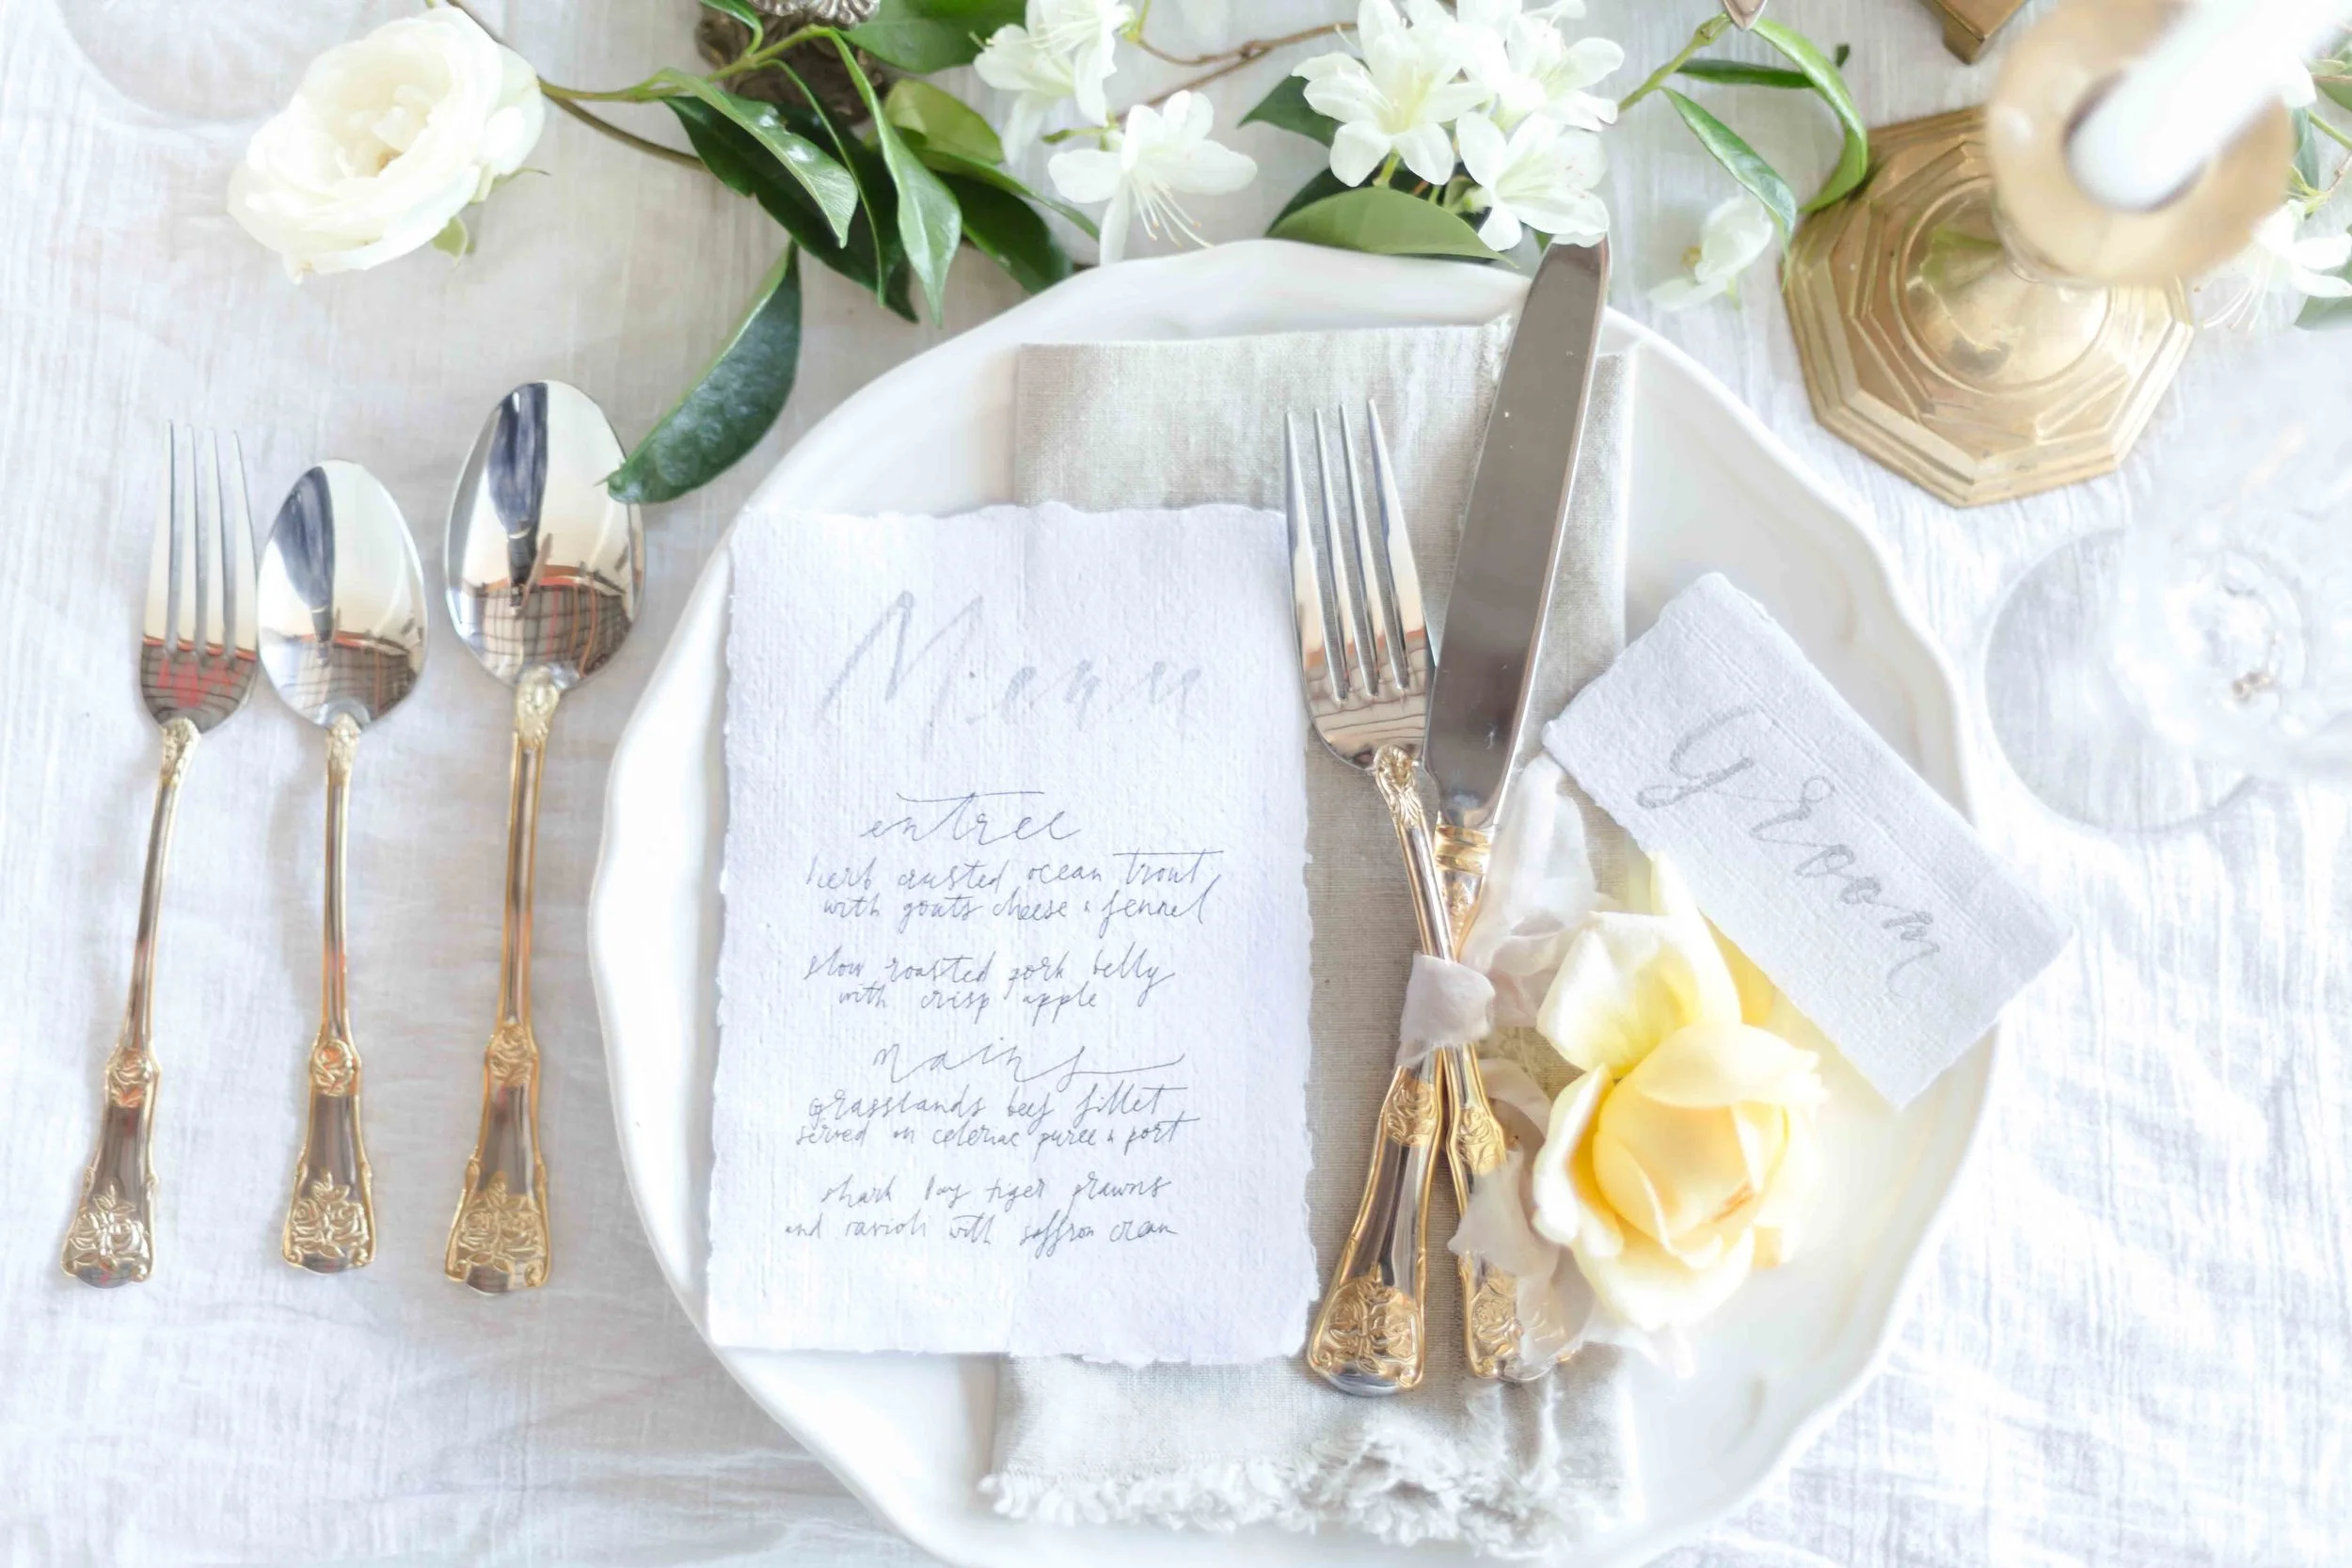 Menu
entree
herb crusted ocean trout
with goats cheese & fennel
slow roasted pork belly
with crisp apple
mains
grasslands beef fillet
served on celeriac puree & port
shark bay tiger prawns
and ravioli with saffron cream
Groom